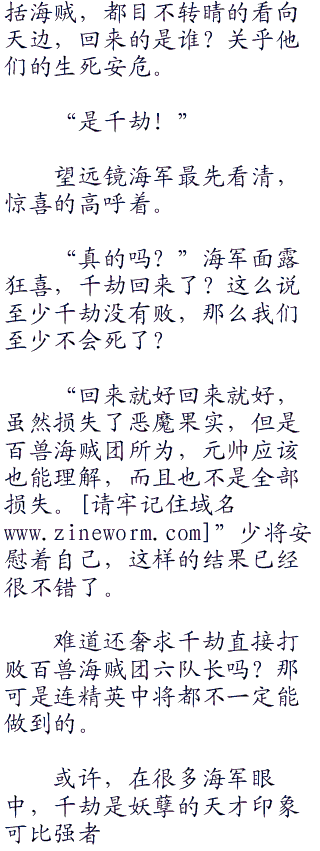 括海贼，都目不转睛的看向
天边，回来的是谁？关乎他
们的生死安危。
“是千劫！”
望远镜海军最先看清，
惊喜的高呼着。
“真的吗？”海军面露
狂喜，千劫回来了？这么说
至少千劫没有败，那么我们
至少不会死了？
“回来就好回来就好，
虽然损失了恶魔果实，但是
百兽海贼团所为，元帅应该
也能理解，而且也不是全部
损失。[请牢记住域名
www.zineworm.com]”少将安
慰着自己，这样的结果已经
很不错了。
难道还奢求千劫直接打
败百兽海贼团六队长吗？那
可是连精英中将都不一定能
做到的。
或许，在很多海军眼
中，千劫是妖孽的天才印象
可比强者